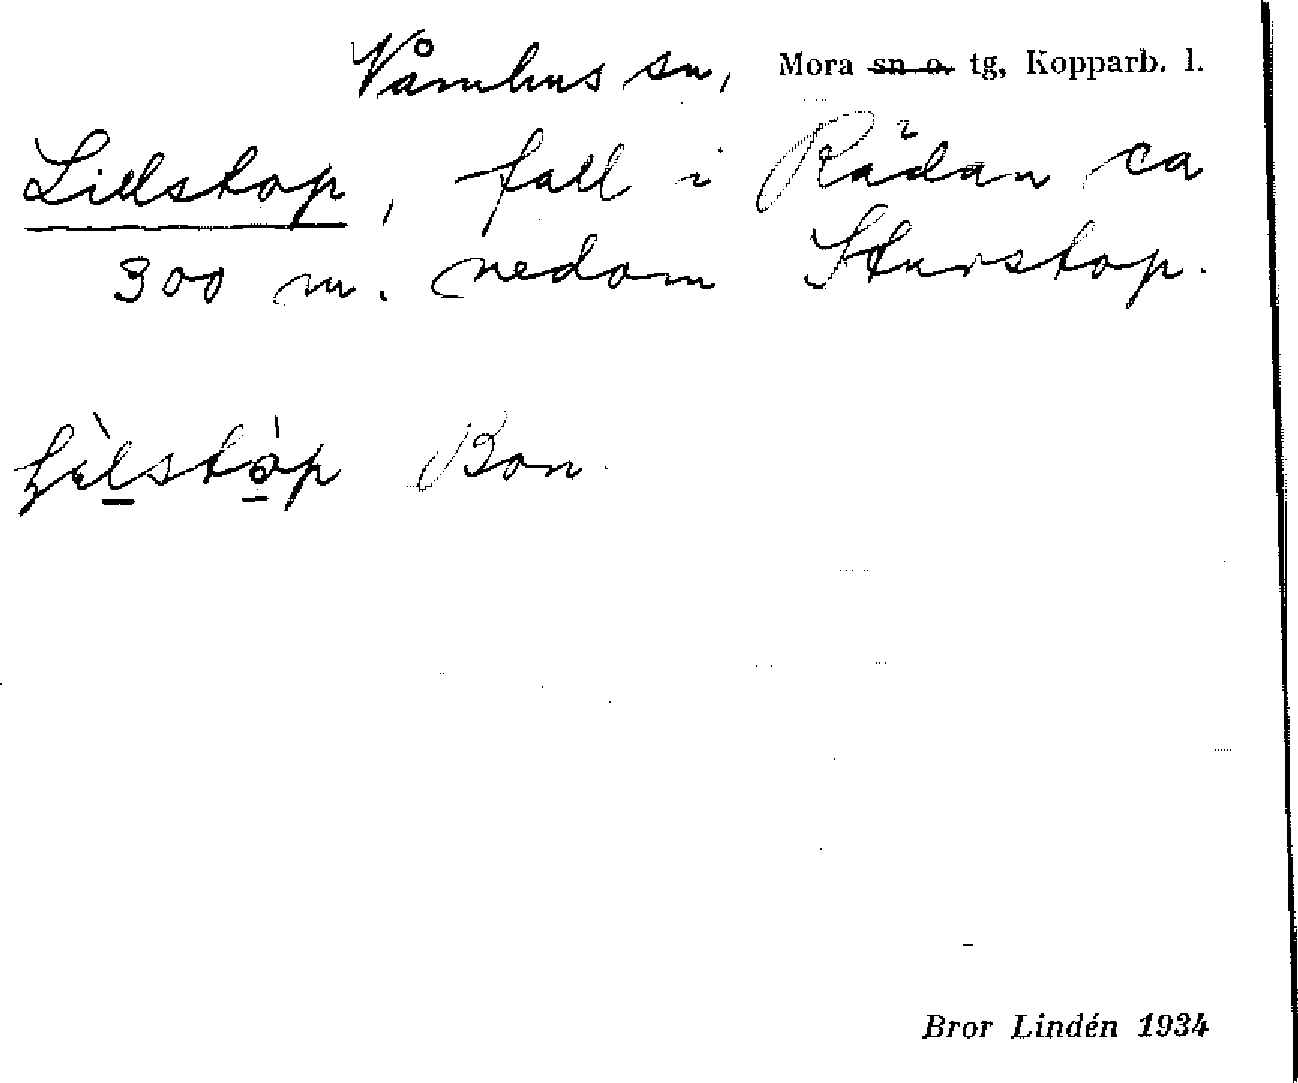 Våmhus sn, Mora sn o. tg, Kopparb. l.
Lillstop, fall i Rådan ca
300 m. nedom Storstop.
Bon.
Bror Lindén 1934